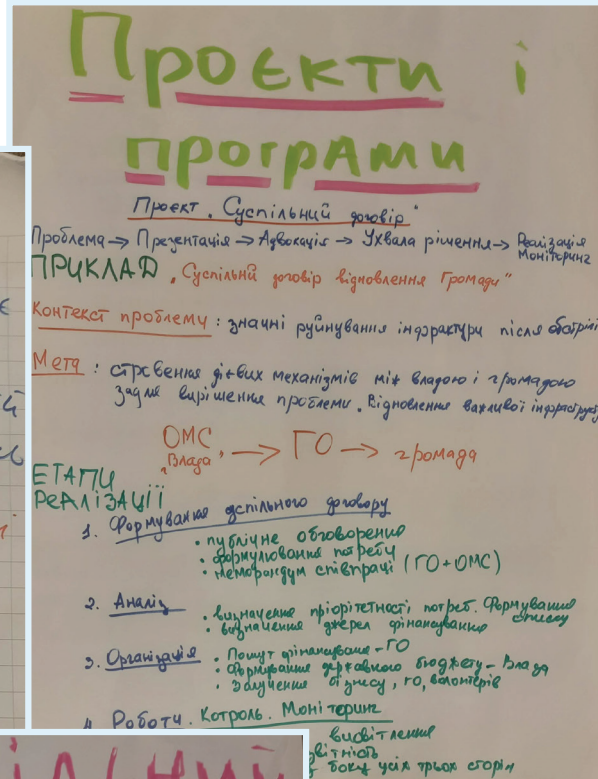 Проєкти і
програми
Проєкт „Суспільний договір"
Проблема → Презентація → Адвокація → Ухвала рішення → Реалізація
Моніторинг
ПРИКЛАД „Суспільнй договір відновлення Громади"
Контекст проблему: значні руйнування інфрактури після
Мета: ствовення дієвих механізмів між владою і громадою
задля вирішення проблеми. Відновлення важливої
ОМС → ГО → громада
„Влада"
ЕТАПИ
РЕАЛІЗАЦІЇ
1. Формування успільного договору
• публічне обговорення
• формулювання потребу
• меморандум співпраці (ГО+ОМС)
2. Аналіз
• визначення пріорітетності потреб. Формування списку
• визначення джерел фінансування
3. Організація
• Пошут фінансування - ГО
• Формування державного бюджету - Влада
• Залучення бізнесу, го, волонтерів
4. Роботи. Котроль. Моніторинг
висвітлення
звітність
з боку усіх трьох сторін